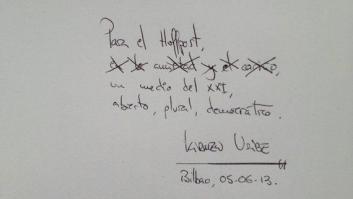 Para el Huffpost,
a la amistad y el cariño,
un medio del XXI,
abierto, plural, democrático.
Kirmen Uribe
Bilbao, 05-06-13.